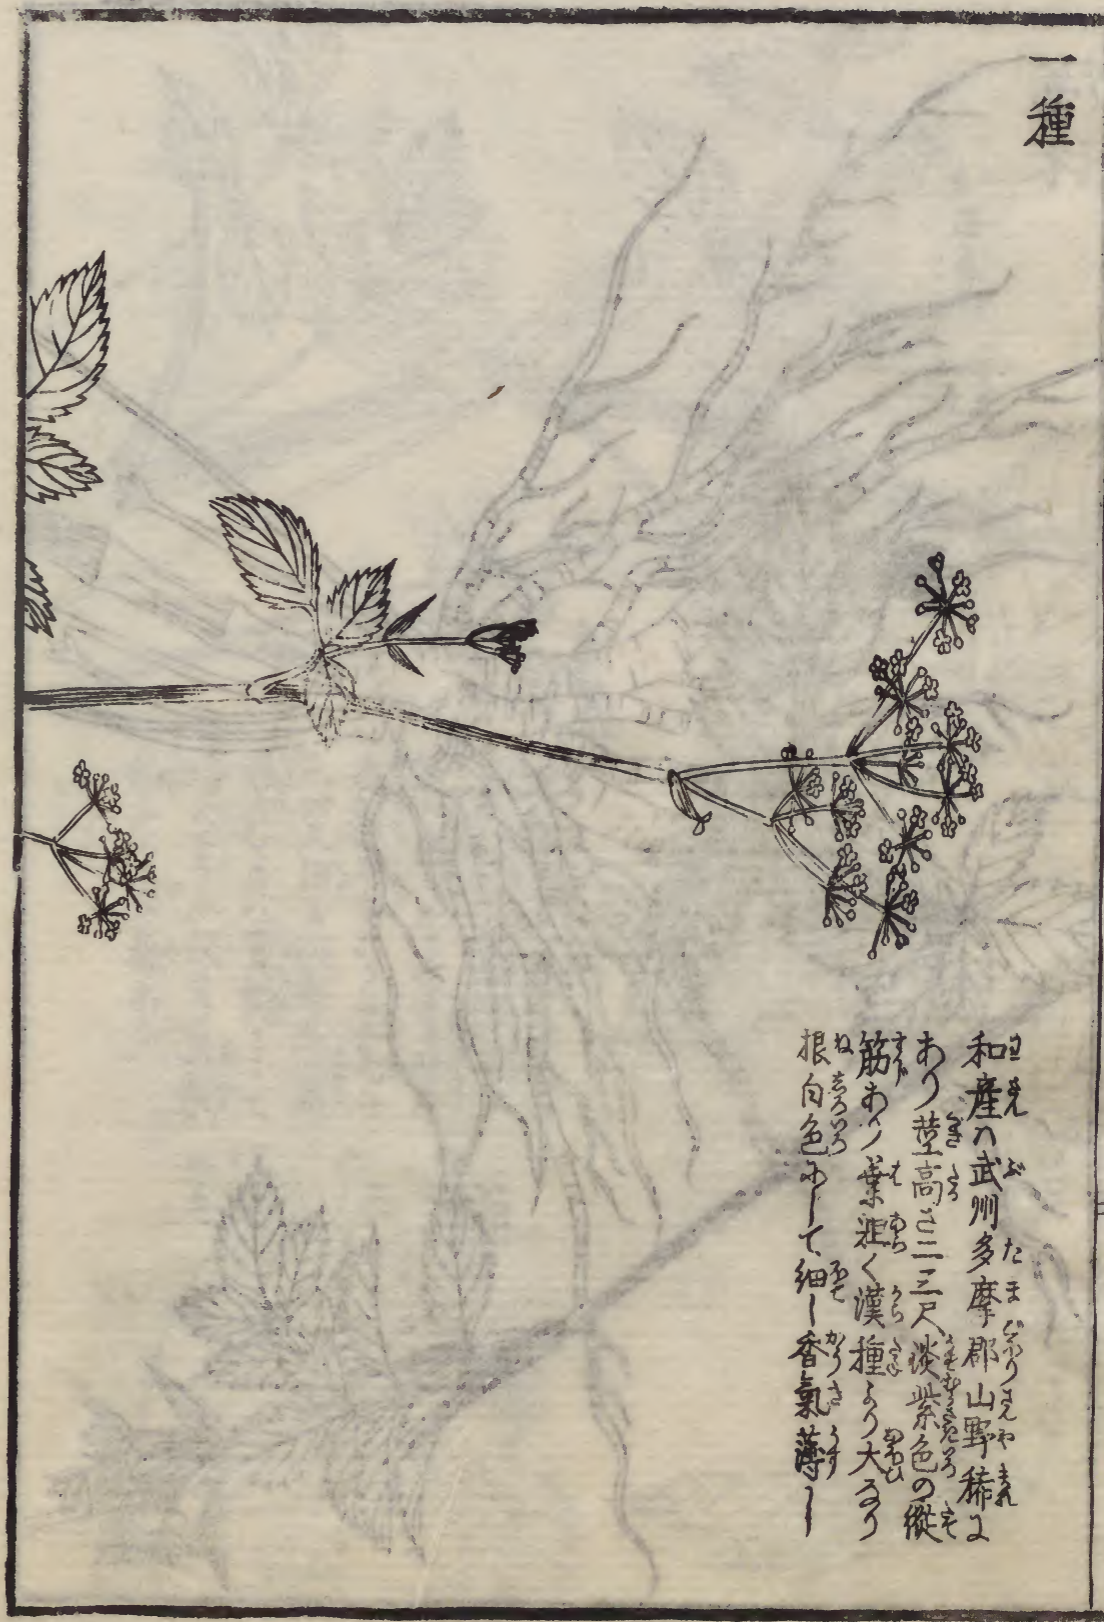 一種
和産ハ武州多摩郡山野稀に
あり莖高さ二三尺淡紫色の縱
筋あり葉粗く漢種より大なり
根白色にして細し香氣薄し